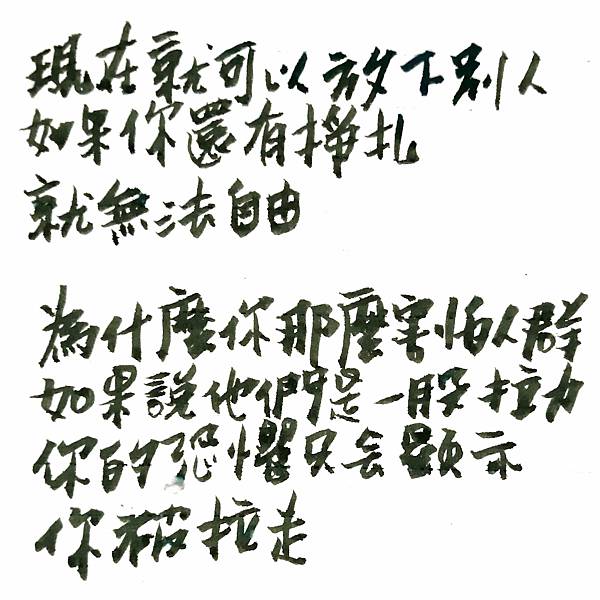 現在就可以放下別人
如果你還有掙扎
就無法自由
為什麼你那麼害怕人群
如果說他們是一股拉力
你的恐懼只会顯示
你被拉走